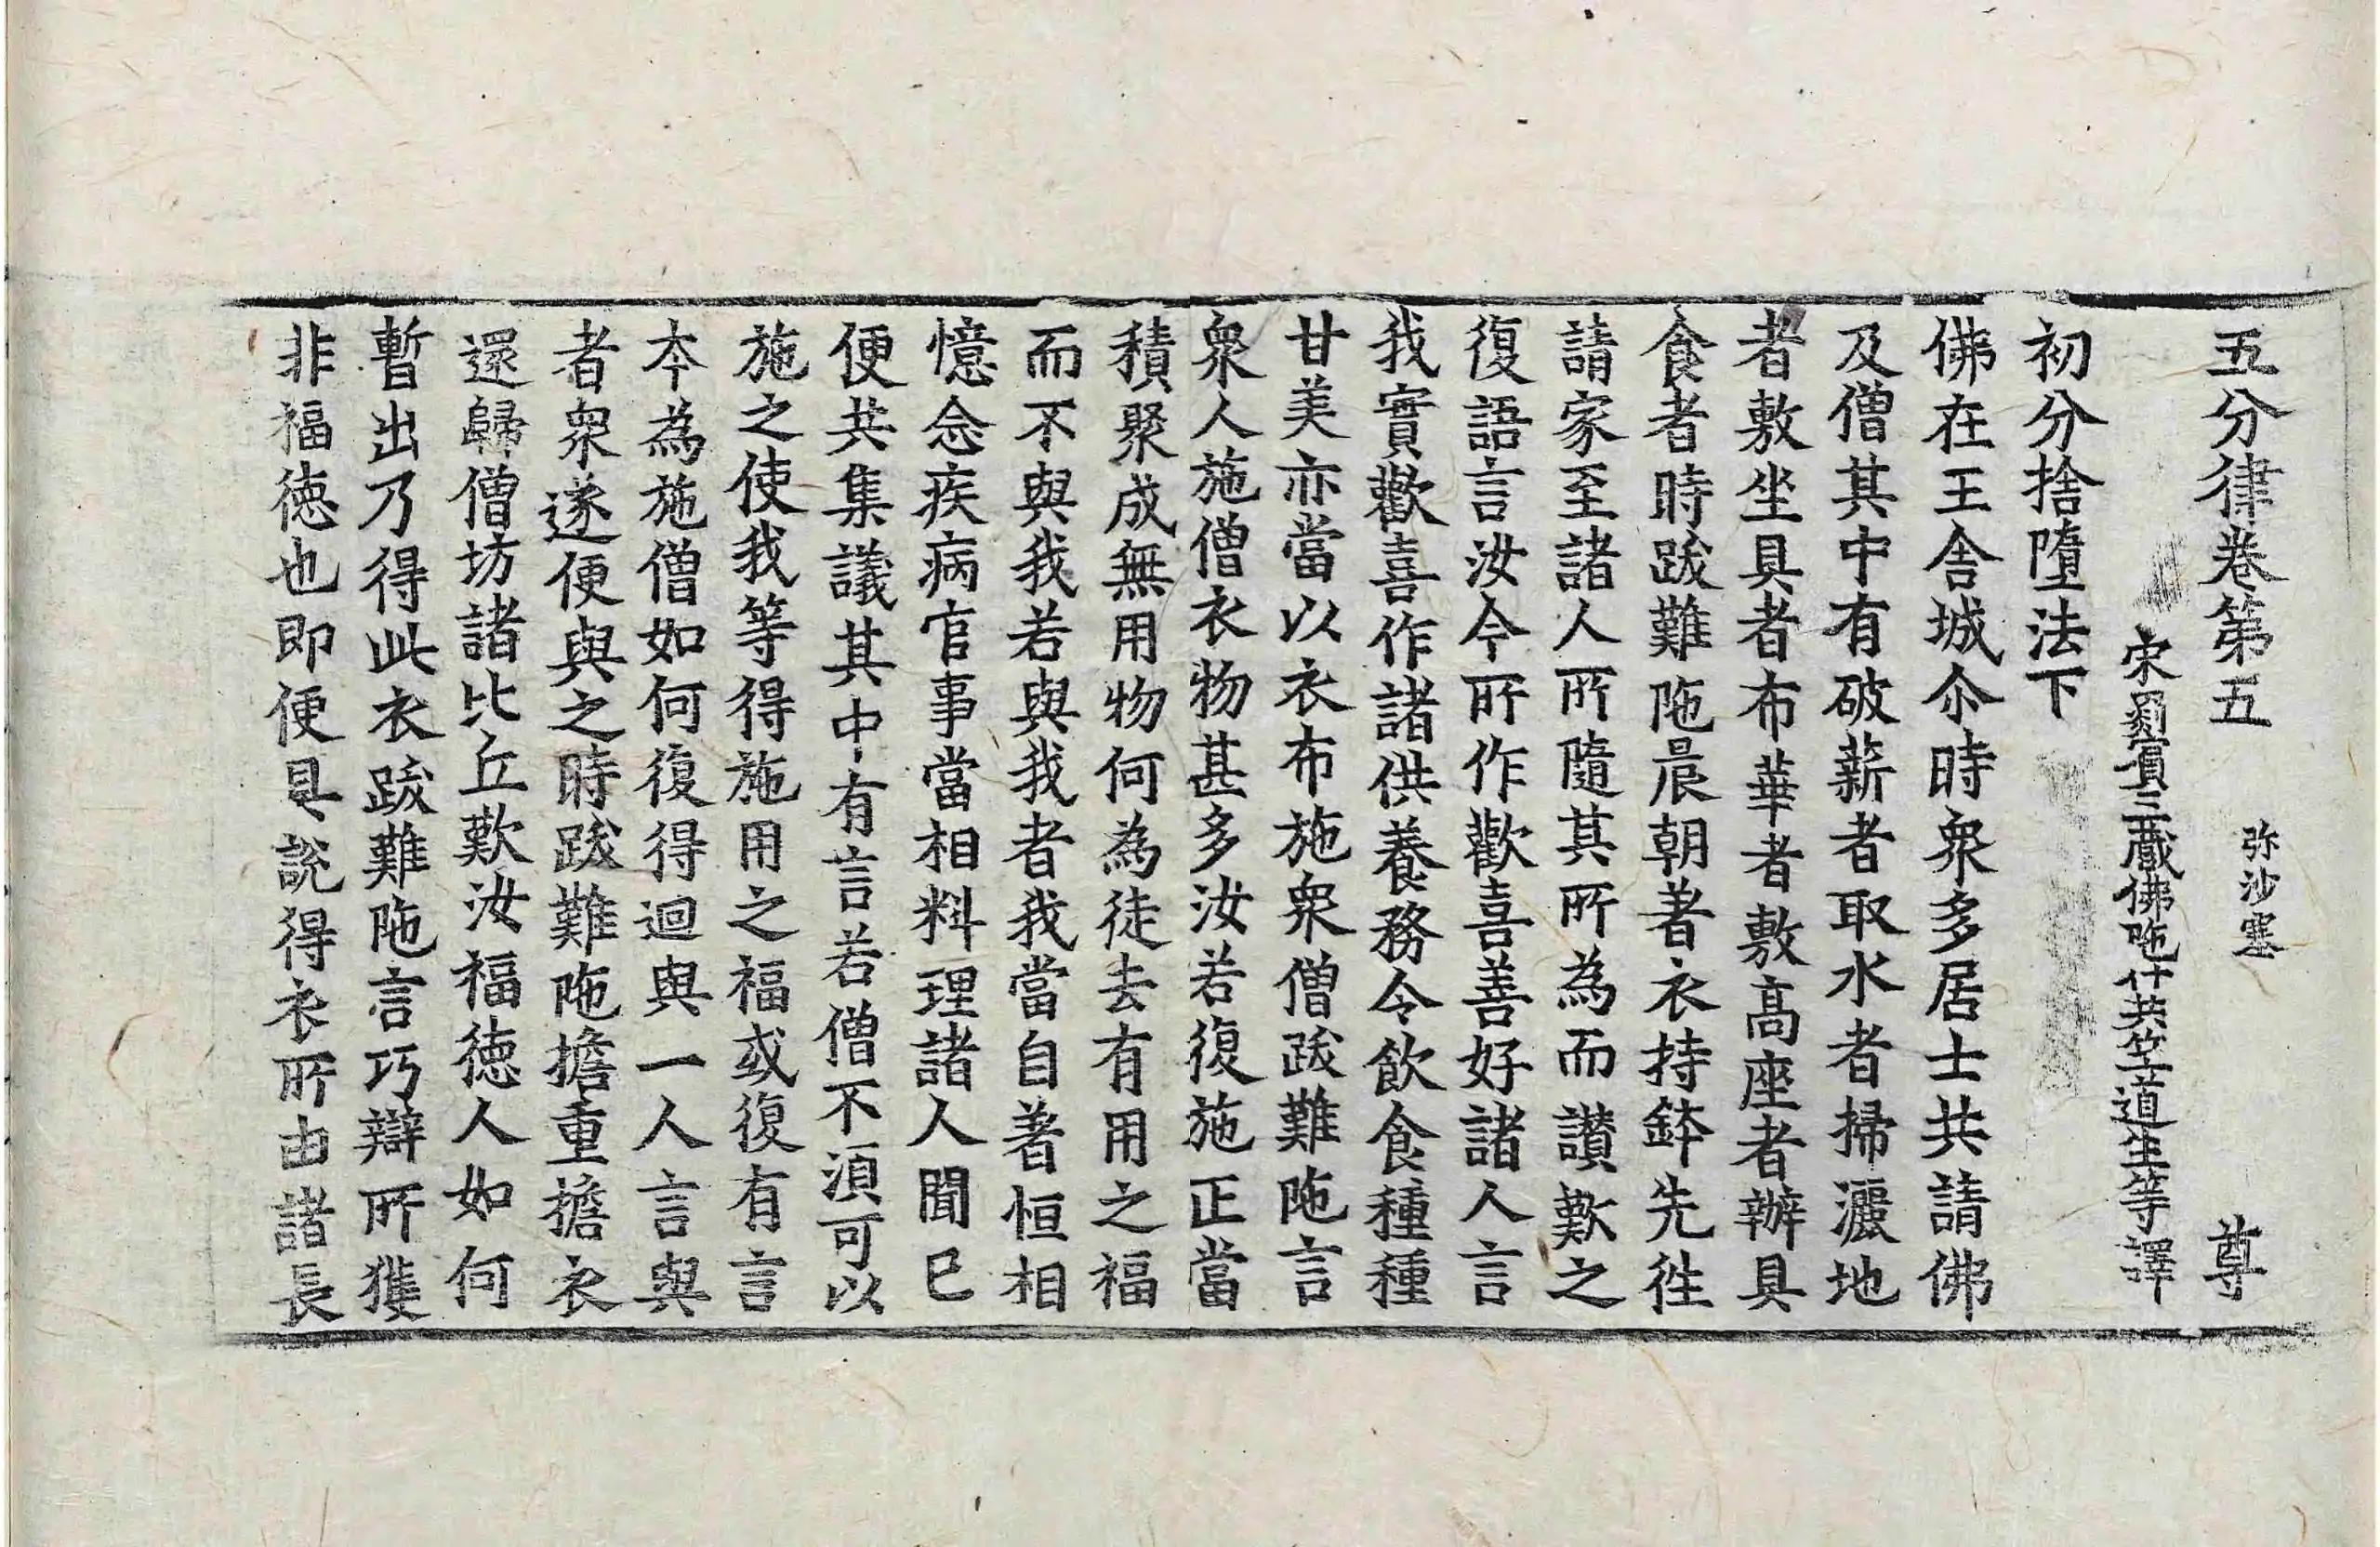 五分律卷第五 弥沙塞 尊
宋罽賓三藏佛陁什共竺道生等譯
初分捨墮法下
佛在王舍城尒時衆多居士共請佛
及僧其中有破薪者取水者掃灑地
者敷坐具者布華者敷髙座者辦具
食者時跋難陁晨朝著衣持鉢先徃
請家至諸人所隨其所為而讃歎之
復語言汝今所作歡喜善好諸人言
我實歡喜作諸供養務令飲食種種
甘美亦當以衣布施衆僧跋難陁言
衆人施僧衣物甚多汝若復施正當
積聚成無用物何為徒去有用之福
而不與我若與我者我當自著恒相
憶念疾病官事當相料理諸人聞已
便共集議其中有言若僧不湏可以
施之使我等得施用之福或復有言
本為施僧如何復得迴與一人言與
者衆遂便與之時跋難陁擔重擔衣
還歸僧坊諸比丘歎汝福徳人如何
暫出乃得此衣跋難陁言巧辯所獲
非福徳也即便具說得衣所由諸長